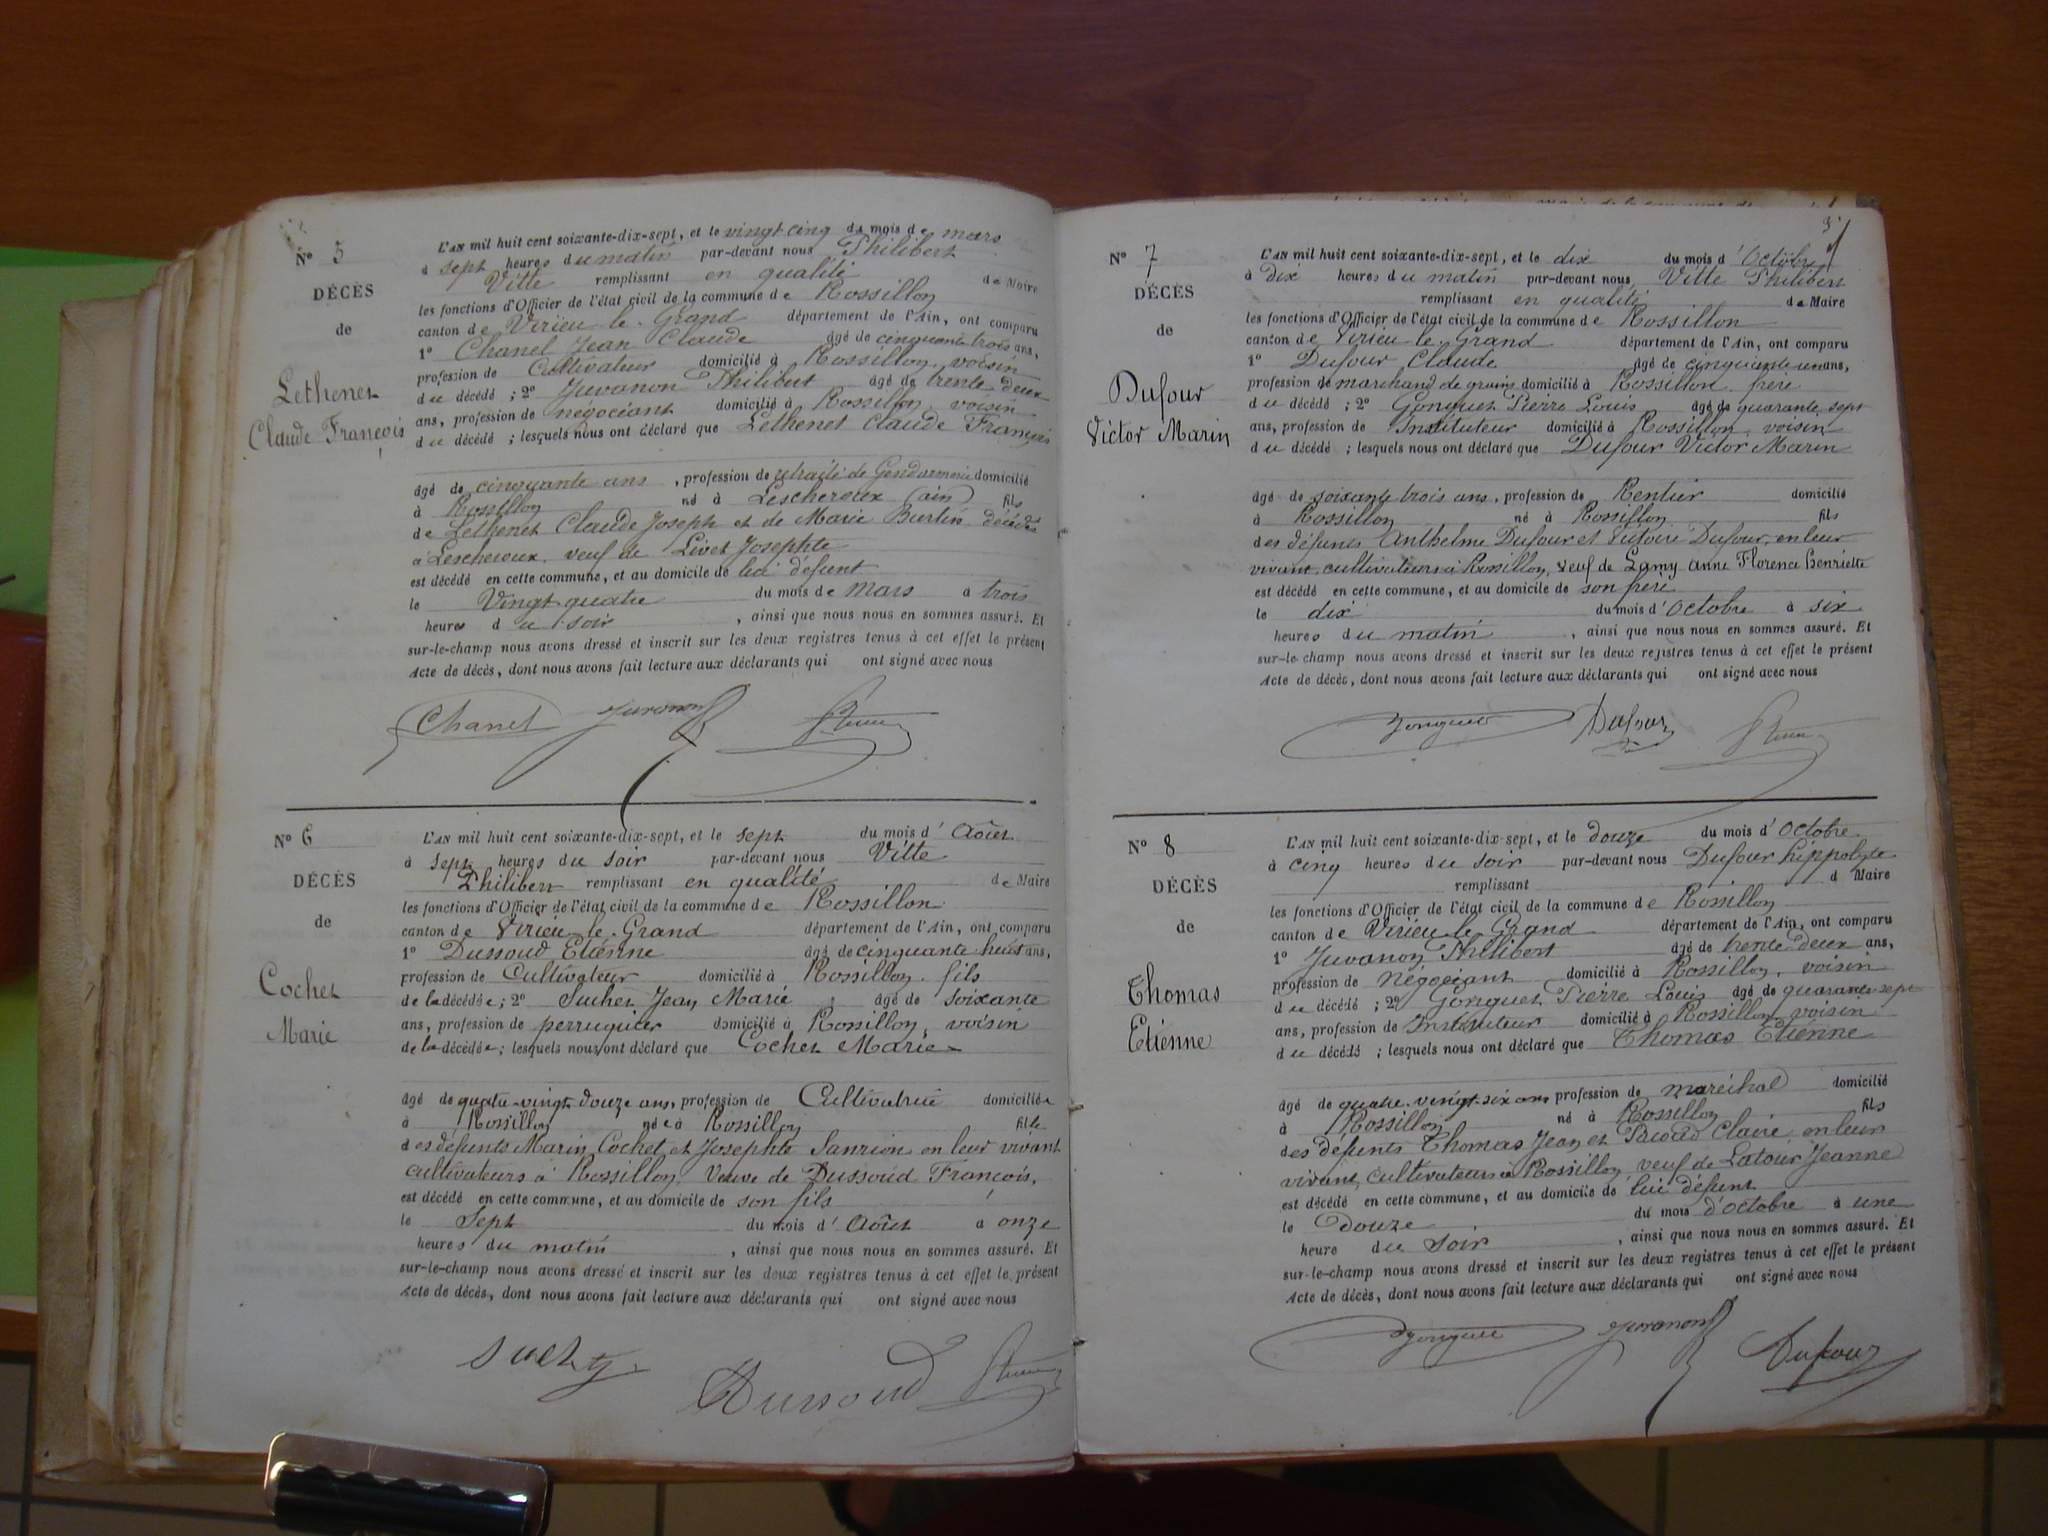 N° 5
DÉCÈS
de
Lethenet
Claude François
L'AN mil huit cent soixante-dix-sept, et le vingt cinq du mois de mars
à sept heures du matin par-devant nous Philibert
Vitte remplissant en qualité de Maire
les fonctions d'Officier de l'état civil de la commune de Rossillon
canton de Virieu le Grand département de l'Ain, ont comparu
1° Chanel Jean Claude âgé de cinquante trois ans,
profession de Cultivateur domicilié à Rossillon, voisin
du décédé ; 2° Juvanon Philibert âgé de trente deux
ans, profession de négociant domicilié à Rossillon, voisin
du décédé ; lesquels nous ont déclaré que Lethenet Claude François
âgé de cinquante ans, profession de retraité de Gendarmerie domicilié
à Rossillon né à Lescheroux (ain) fils
de Lethenet Claude Joseph et de Marie Burtin décédés
à Lescheroux. veuf de Livet Josephte
est décédé en cette commune, et au domicile de lui défunt
le Vingt quatre du mois de Mars à trois
heures du soir, ainsi que nous nous en sommes assuré. Et
sur-le-champ nous avons dressé et inscrit sur les deux registres tenus à cet effet le présent
Acte de décès, dont nous avons fait lecture aux déclarants qui ont signé avec nous
Chanel Juvanon
N° 6
DÉCÈS
de
Cochet
Marie
L'AN mil huit cent soixante-dix-sept, et le sept du mois d'Août
à sept heures du soir par-devant nous Vitte
Philibert remplissant en qualité de Maire
les fonctions d'Officier de l'état civil de la commune de Rossillon
canton de Virieu le Grand département de l'Ain, ont comparu
1° Dussoud Etienne âgé de cinquante huit ans,
profession de Cultivateur domicilié à Rossillon. fils
de la décédée ; 2° Suchet Jean Marie âgé de soixante
ans, profession de perruquier domicilié à Rossillon, voisin
de la décédée ; lesquels nous ont déclaré que Cochet Marie
âgé de quatre-vingt douze ans, profession de Cultivatrice domiciliée
à Rossillon née à Rossillon fille
des défunts Marin Cochet et Josephte Sanrion en leur vivant
cultivateurs à Rossillon. Veuve de Dussoud François,
est décédé en cette commune, et au domicile de son fils
le Sept du mois d'Août à onze
heures du matin, ainsi que nous nous en sommes assuré. Et
sur-le-champ nous avons dressé et inscrit sur les deux registres tenus à cet effet le présent
Acte de décès, dont nous avons fait lecture aux déclarants qui ont signé avec nous
Dussoud
N° 7
DÉCÈS
de
Dufour
Victor Marin
L'AN mil huit cent soixante-dix-sept, et le dix du mois d'Octobre
à dix heures du matin par-devant nous Vitte Philibert
remplissant en qualité de Maire
les fonctions d'Officier de l'état civil de la commune de Rossillon
canton de Virieu le Grand département de l'Ain, ont comparu
1° Dufour Claude âgé de cinquante un ans,
profession de marchand de grains domicilié à Rossillon frère
du décédé ; 2° Gonguet Pierre Louis âgé de quarante sept
ans, profession de Instituteur domicilié à Rossillon, voisin
du décédé ; lesquels nous ont déclaré que Dufour Victor Marin
âgé de soixante trois ans, profession de Rentier domicilié
à Rossillon né à Rossillon fils
des défunts Anthelme Dufour et Dufour, en leur
vivant cultivateurs à Rossillon, Veuf de Lamy Anne Florence Henriette
est décédé en cette commune, et au domicile de son frère
le dix du mois d'Octobre à six
heures du matin, ainsi que nous nous en sommes assuré. Et
sur-le-champ nous avons dressé et inscrit sur les deux registres tenus à cet effet le présent
Acte de décès, dont nous avons fait lecture aux déclarants qui ont signé avec nous
Gonguet Dufour
N° 8
DÉCÈS
de
Thomas
Etienne
L'AN mil huit cent soixante-dix-sept, et le douze du mois d'Octobre
à cinq heures du soir par-devant nous Dufour hippolyte
remplissant d Maire
les fonctions d'Officier de l'état civil de la commune de Rossillon
canton de Virieu le Grand département de l'Ain, ont comparu
1° Juvanon Philibert âgé de trente deux ans,
profession de Négociant domicilié à Rossillon, voisin
du décédé ; 2° Gonguet Pierre Louis âgé de quarante sept
ans, profession de Instituteur domicilié à Rossillon voisin
du décédé ; lesquels nous ont déclaré que Thomas Etienne
âgé de quatre-vingt-six ans profession de maréchal domicilié
à Rossillon né à Rossillon fils
des défunts Thomas Jean et Pacoud Claire en leur
vivant, cultivateurs à Rossillon veuf de Latour Jeanne
est décédé en cette commune, et au domicile de lui défunt
le Douze du mois d'octobre à une
heure du soir, ainsi que nous nous en sommes assuré. Et
sur-le-champ nous avons dressé et inscrit sur les deux registres tenus à cet effet le présent
Acte de décès, dont nous avons fait lecture aux déclarants qui ont signé avec nous
Gonguet Juvanon Dufour